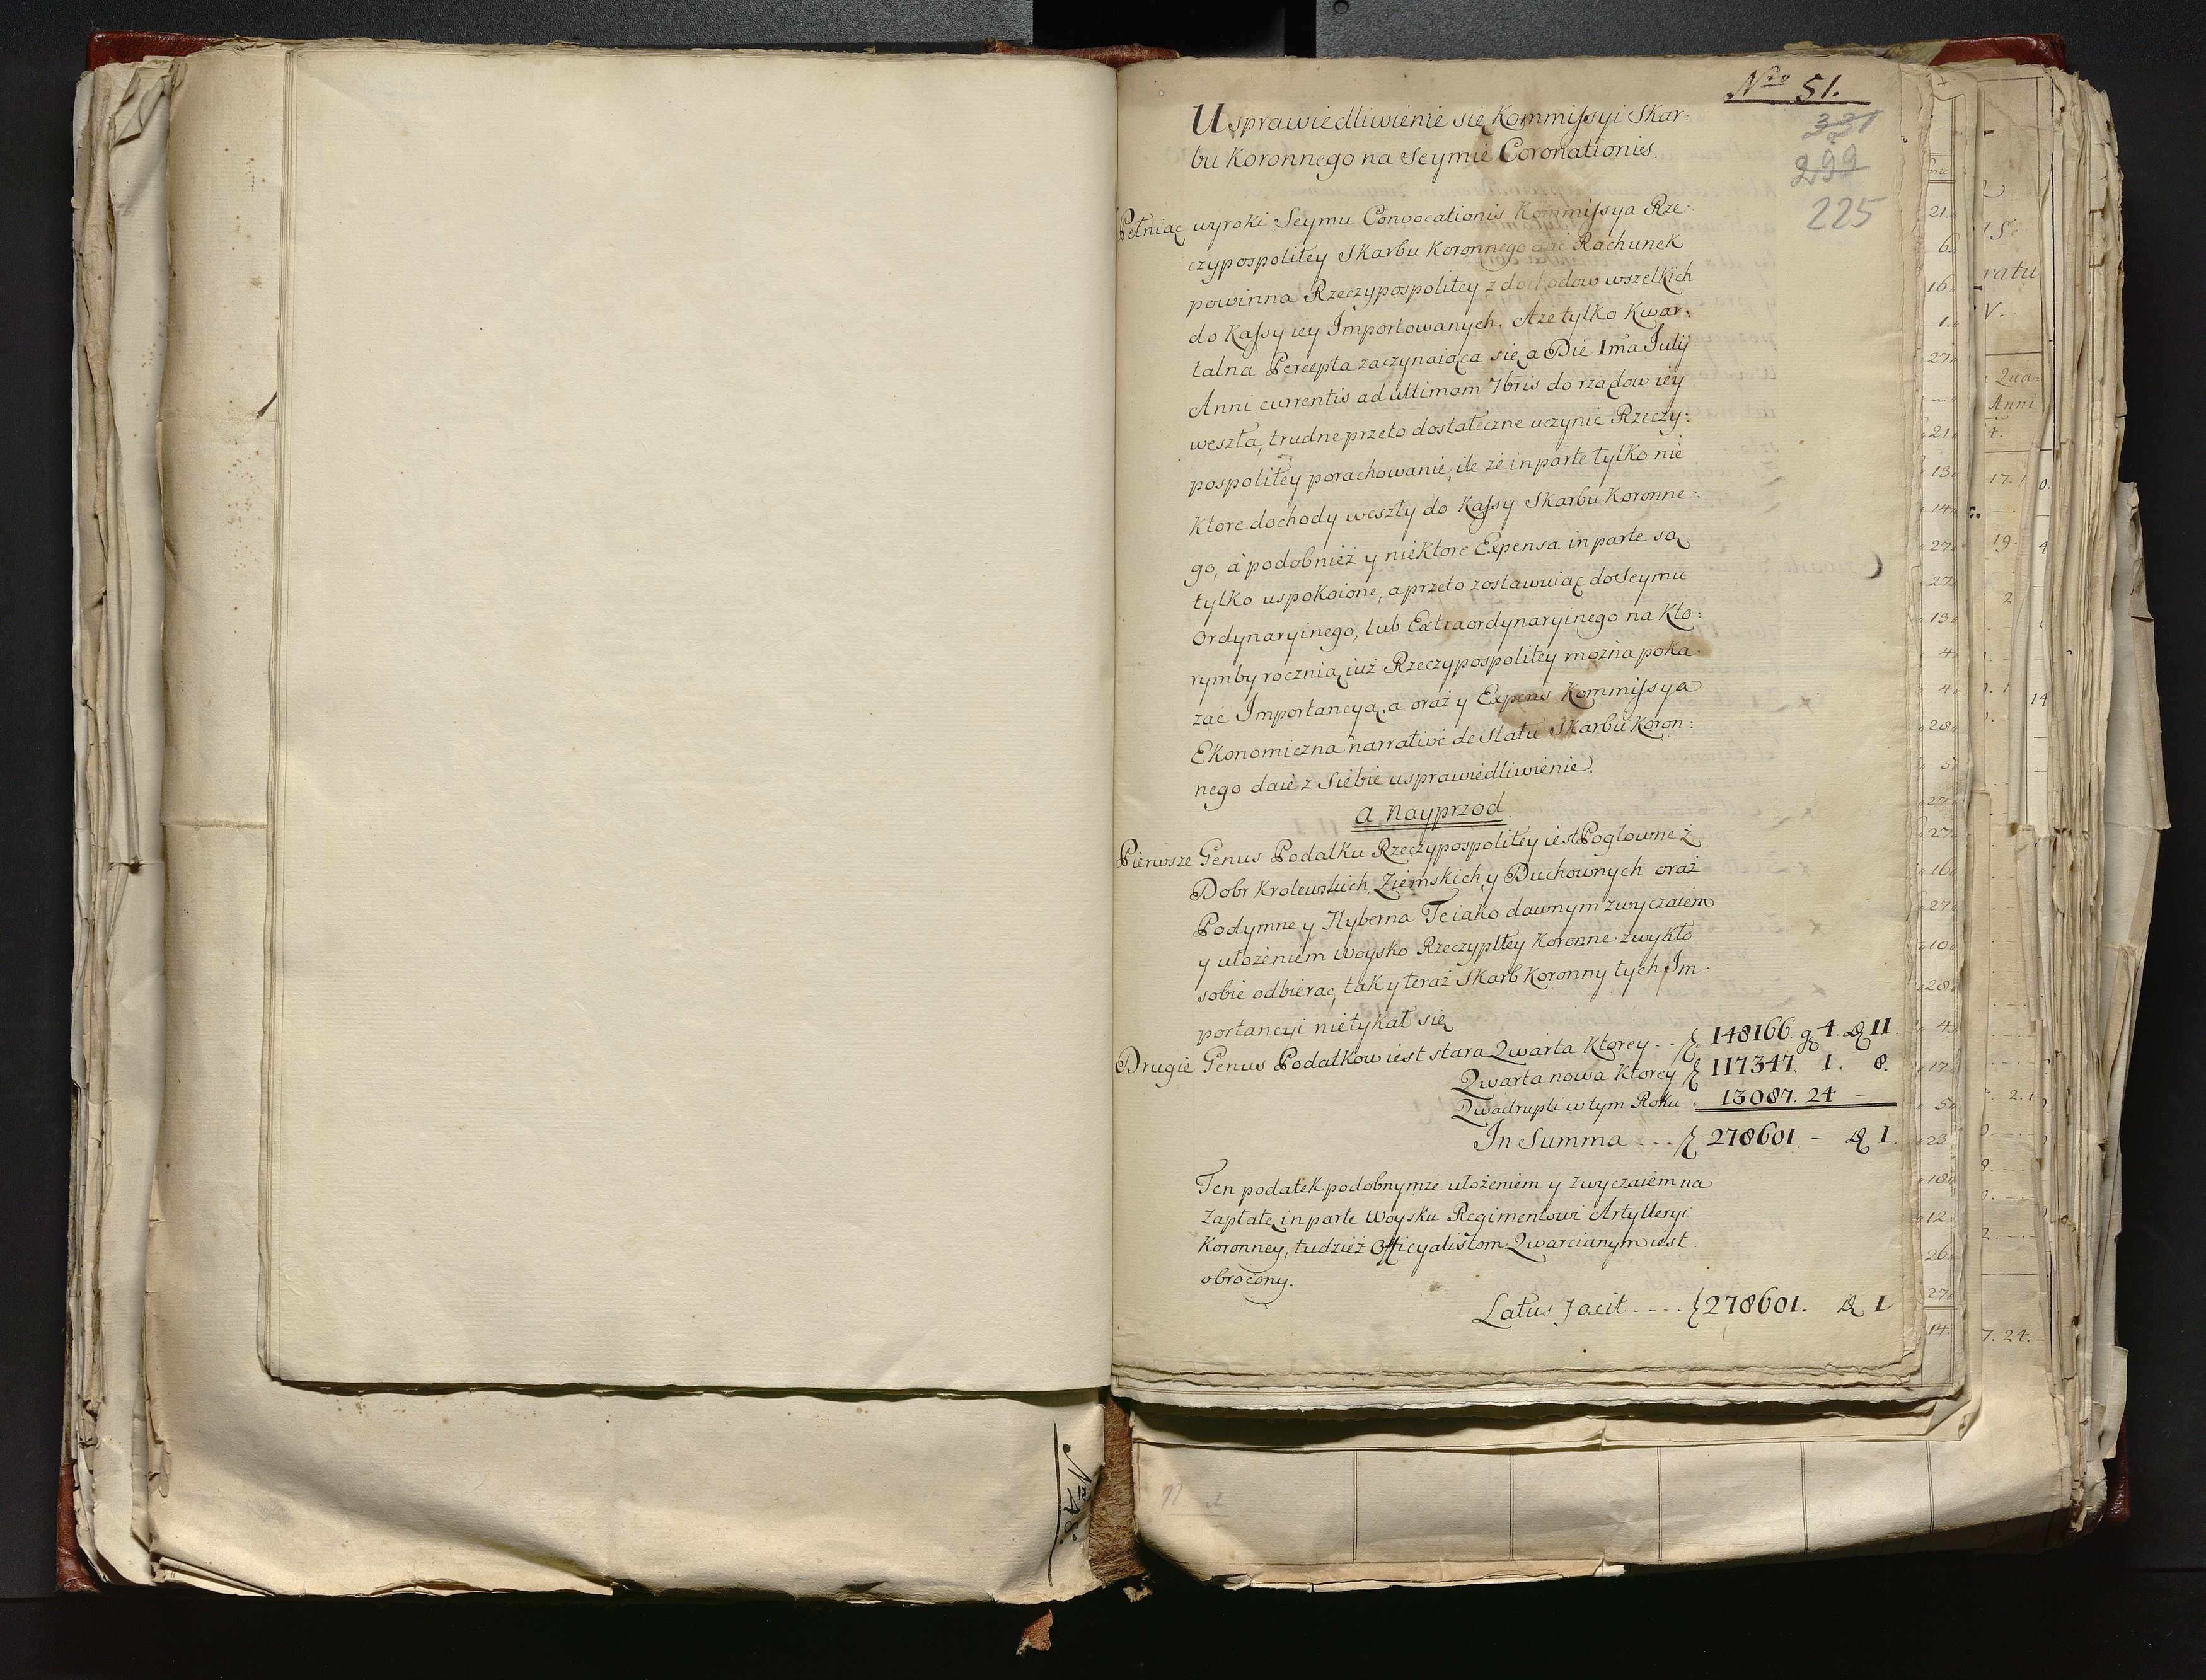 Nro 51.
331
299
225
Usprawiedliwienie się Kommissyi Skar:
bu Koronnego na Seymie Coronationis.
Pełniąc wyroki Seymu Convocationis Kommissya Rze:
czypospolitey Skarbu Koronnego dać Rachunek
powinna Rzeczypospolitey z dochodow wszelkich
do Kassy iey Importowanych. Aże tylko Kwar:
talna Percepta zaczynaiąca się a Die 1ma Julij
Anni currentis ad ultimam 7bris do rządow iey
weszła, trudne przeto dostateczne uczynić Rzeczy:
pospolitey porachowanie, ile że in parte tylko nie
ktore dochody weszły do Kassy Skarbu Koronne:
go, à podobnież y niektore Expensa in parte są
tylko uspokoione, a przeto zostawuiąc do Seymu
Ordynaryinego, lub Extraordynaryinego na Kto:
rymby rocznią iuż Rzeczypospolitey można poka:
zać Importancyą, a oraz y Expens Kommissya
Ekonomiczna narrativè de Statu Skarbu Koron:
nego daie z Siebie usprawiedliwienie.
a Nayprzod
Pierwsze Genus Podatku Rzeczypospolitey iest Pogłowne z
Dobr Krolewskich, Ziemskich, y Duchownych oraz
Podymne y Hyberna Te iako dawnym zwyczaiem
y ułożeniem Woysko Rzeczypltey Koronne zwykło
sobie odbierać, tak y teraz Skarb Koronny tych Im:
portancyi nietykał się
Drugie Genus Podatkow iest stara Qwarta Ktorey - - 148166. g 4. 11.
Qwarta nowa Ktorey 117347. 1. 8.
Qwadrupli w tym Roku . 13087. 24 -
In Summa - - - 278601 - 1.
Ten podatek podobnymże ułożeniem y zwyczaiem na
Zapłatę in parte Woysku Regimentowi Artylleryi
Koronney, tudzież Officyalistom Qwarcianym iest
obrocony.
Latus facit - - - - 278601. 1